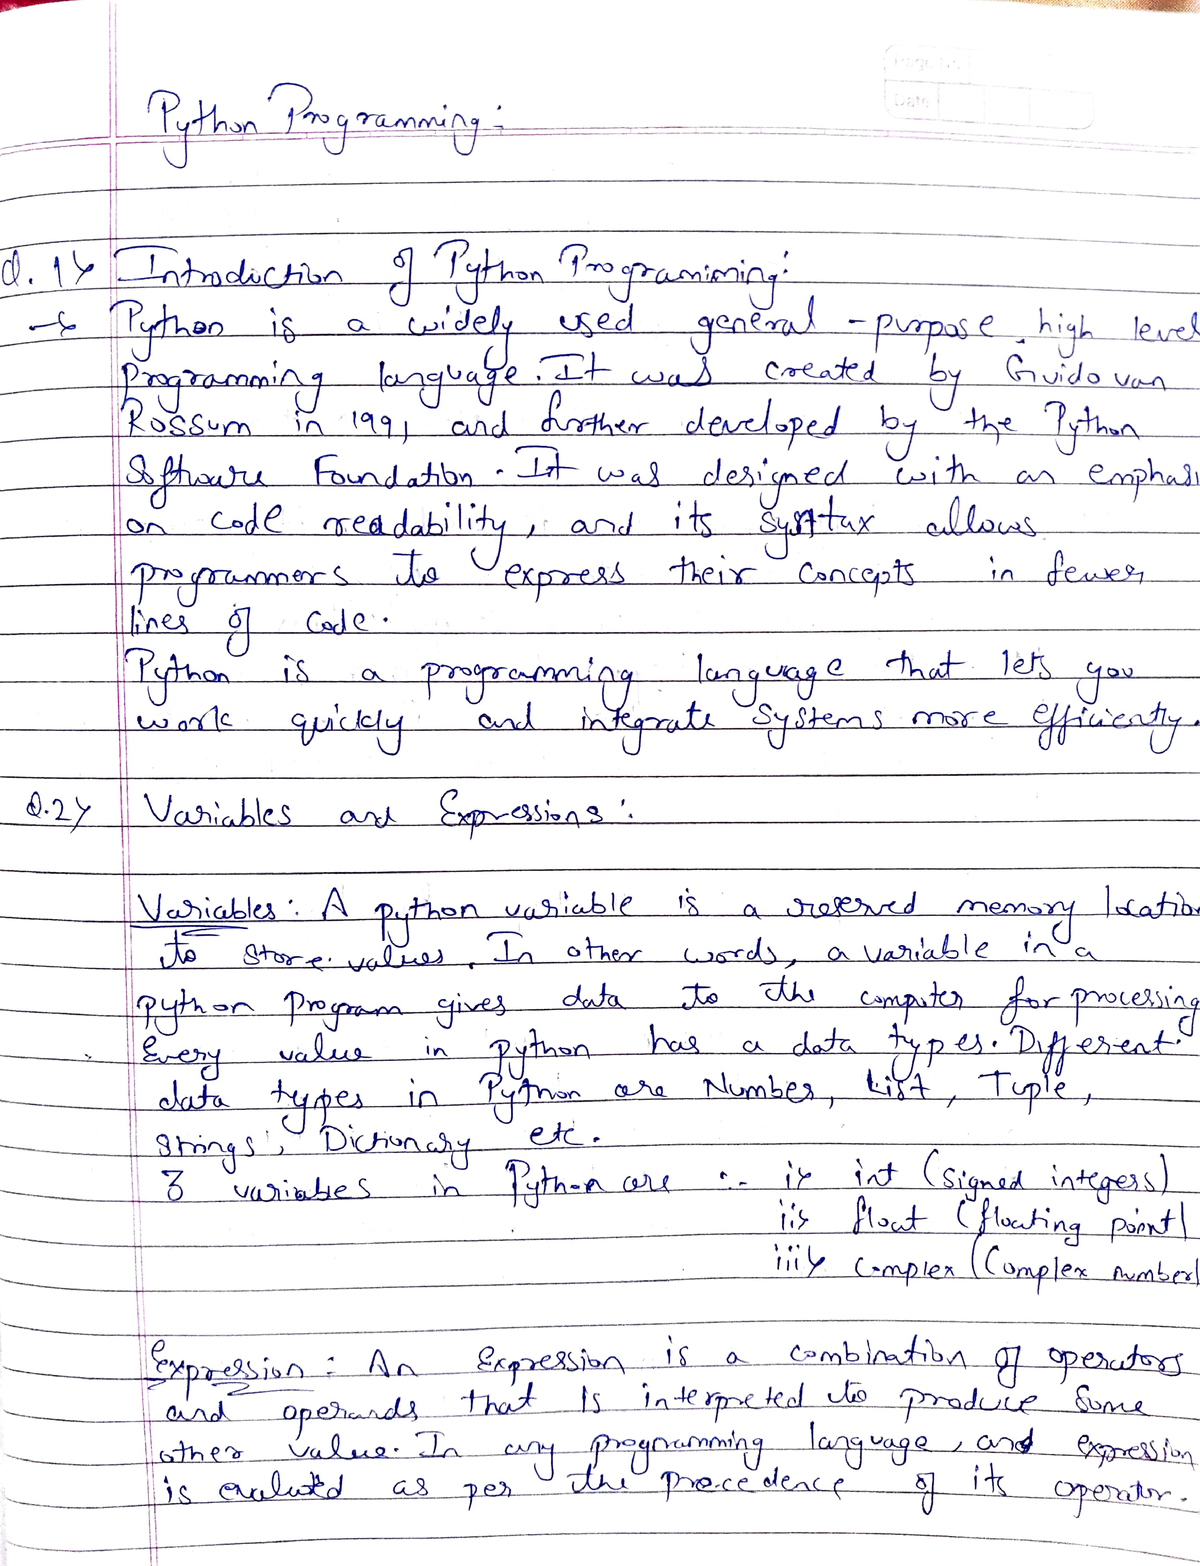 Page No.
Date
Python Programming :
Q.1> Introdiction of Python Programiming:
→ Python is a widely used general - purpose, high level
programming language. It was created by Guido van
Rossum in 1991 and further developed by the Python
Software Foundation. It was designed with an emphasi
on code readability, and its systtax allows
programmers to express their concepts in fewer
lines of code.
Python is a programming language that lets you
work quickly and integrate systems more efficiently.
Q.2> Variables and Expressions :
Variables : A python variable is a reserved memory location
to store values. In other words, a variable in a
python program gives data to the computer for processing
Every value in python has a data types. Different
data types in Python are Number, List, Tuple,
Strings, Dictionary etc.
3 variables in Python are :- i> int (signed integers)
ii> float (floating point)
iii> complex (Complex number)
Expression : An Expression is a combination of operators
and operands that is interpreted to produce some
other value. In any programming language, and expression
is evaluted as per the precedence of its operator.